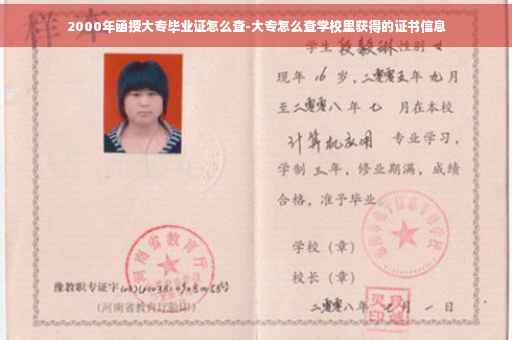 2000年函授大专毕业证怎么查-大专怎么查学校里获得的证书信息
样本
学生段毅琳性别女
现年16岁,二零零五年九月
至二零零八年七 月在本校
计算机应用 专业学习,
学制三年,修业期满,成绩
合格,准予毕业
学校(章)
校长(章)
二零零八年七月一日
河南省教育厅
豫教职专证字
(河南省教育厅验印)